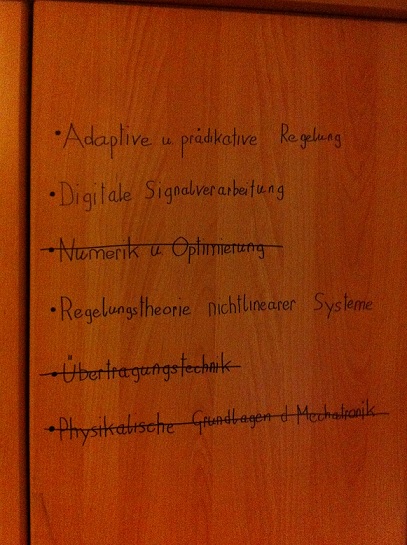 • Adaptive u prädikative Regelung
• Digitale Signalverarbeitung
• Numerik u Optimierung
• Regelungstheorie nichtlinearer Systeme
• Übertragungstechnik
• Physikalische Grundlagen d Mechatronik